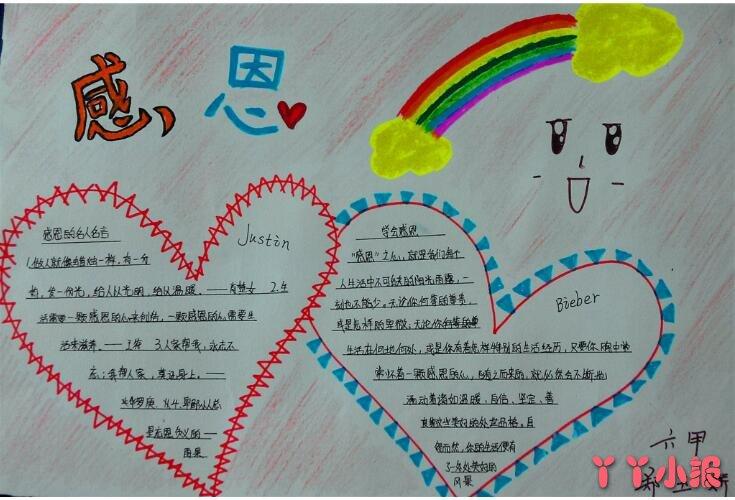 感恩
感恩的名人名言
Justin
1.做人就像蜡烛一样,有一分
热,发一份光,给人以光明,给以温暖。——肖楚女 2.生
活需要一颗感恩的心来创造,一颗感恩的心需要生
活来滋养。——王符 3.人家帮我,永志不
忘;我帮人家,莫记心上。——
华罗庚
是忘恩负义的——
雨果
学会感恩
"感恩"之心,就是我们每个
人生活中不可或缺的阳光雨露,一
刻也不能少。无论你何等的尊贵,
或是怎样的卑微;无论你
生活在何地何处,或是你有着怎样特别的生活经历,只要你胸中常
常怀着一颗感恩的心,随之而来的,就必然会不断地
涌动着诸如温暖、自信、坚定、善
良
Bieber
六甲
丫丫小报